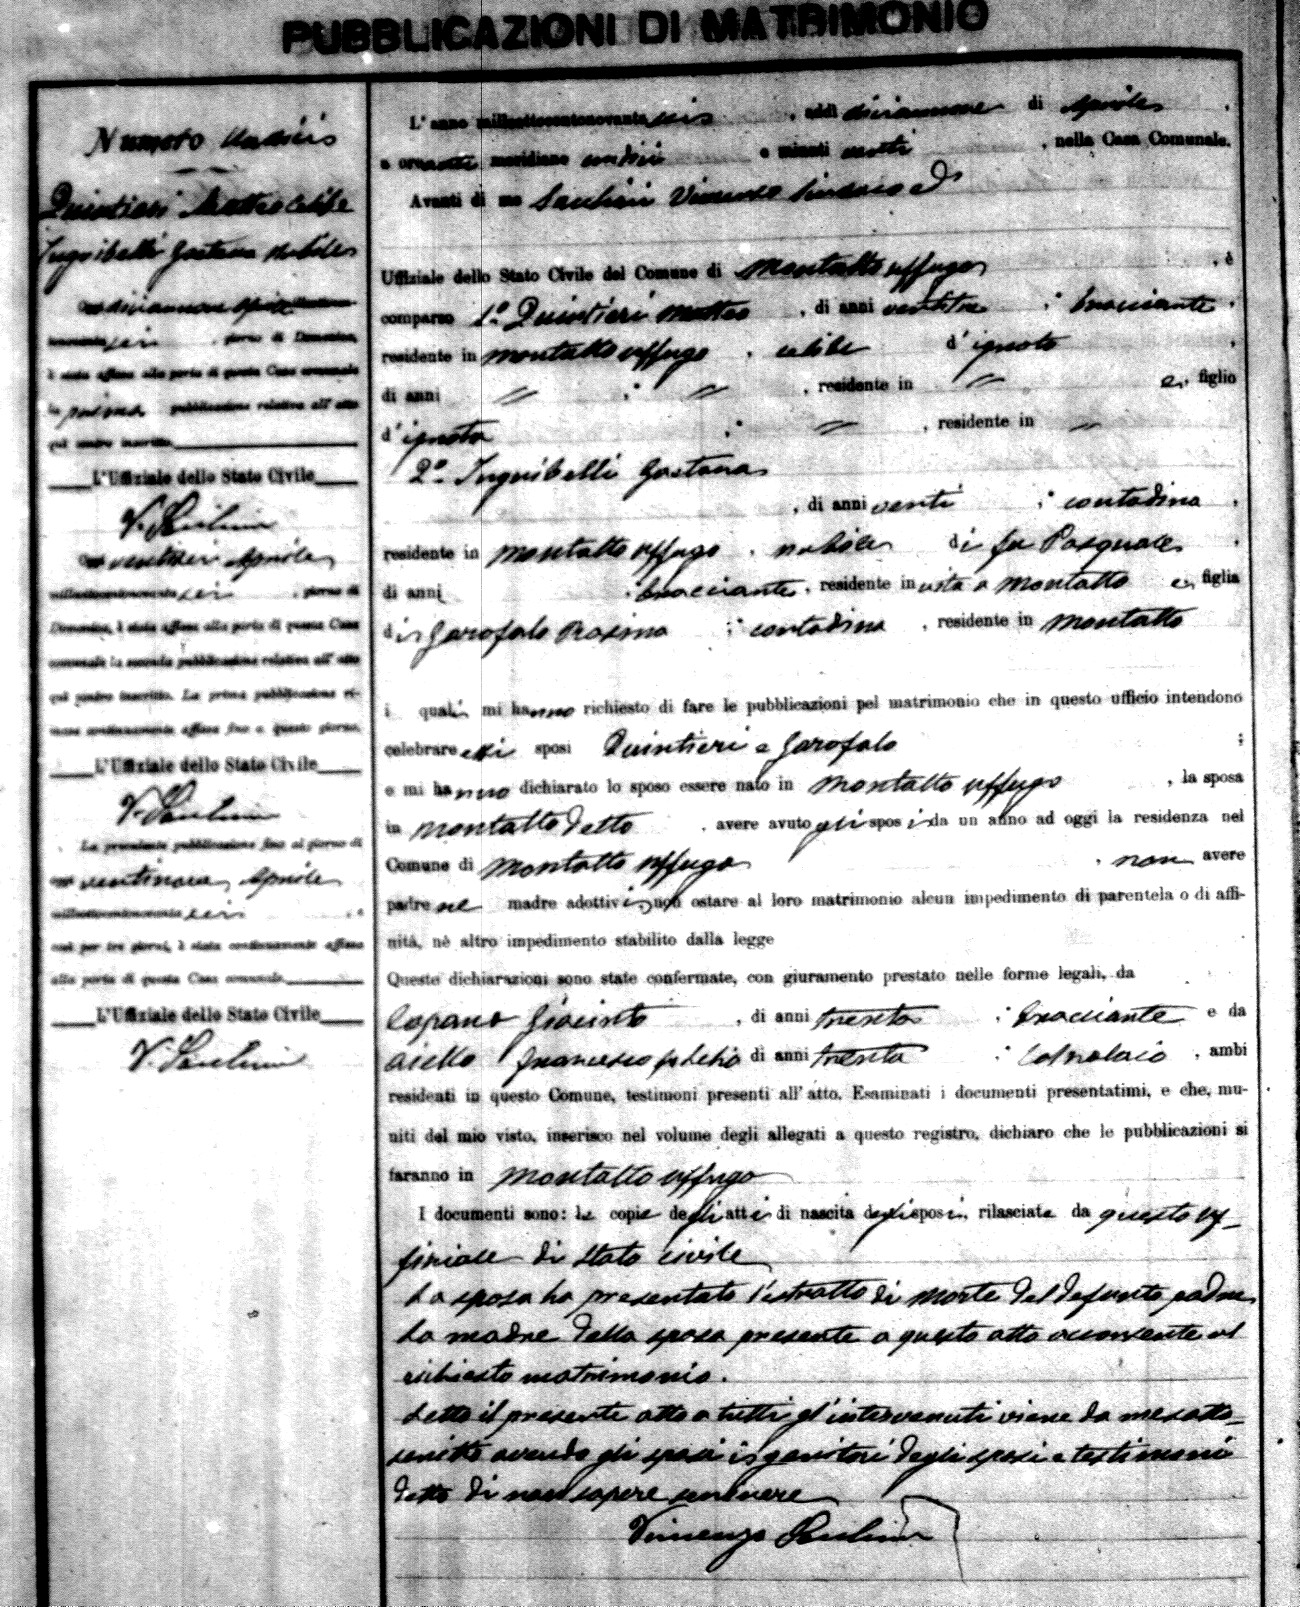 PUBBLICAZIONI DI MATRIMONIO
Numero undici
Quintieri Matteo celibe
Inguibelli Gaetana nubile
Oggi diciannove Aprile millottocento-
novanta sei, giorno di Domenica,
è stata affissa alla porta di questa Casa comunale
la prima pubblicazione relativa all'atto
qui contro inscritto.
L'Uffiziale dello Stato Civile
Oggi ventisei Aprile
millottocentonovanta sei, giorno di
Domenica, è stata affissa alla porta di questa Casa
comunale la seconda pubblicazione relativa all'atto
qui contro inscritto. La prima pubblicazione ri-
mase continuamente affissa fino a questo giorno.
L'Uffiziale dello Stato Civile
La precedente pubblicazione fino al giorno di
oggi ventinove Aprile
millottocentonovanta sei, e
così per tre giorni, è stata continuamente affissa
alla porta di questa Casa comunale.
L'Uffiziale dello Stato Civile
L'anno millottocentonovanta sei, addì diciannove di Aprile,
a ore anti meridiane undici e minuti venti, nella Casa Comunale.
Avanti di me Vincenzo Sindaco ed
Uffiziale dello Stato Civile del Comune di Montalto Uffugo, è
comparso 1° Quintieri Matteo, di anni ventitre; bracciante,
residente in Montalto Uffugo, celibe d'ignoto,
di anni // ; //, residente in // e, figlio
d'ignota ; //, residente in //
2° Inguibelli Gaetana
, di anni venti ; contadina,
residente in Montalto Uffugo, nubile di fu Pasquale,
di anni ; bracciante, residente in vita a Montalto e, figlia
di Garofalo Rosina ; contadina, residente in Montalto
i quali mi hanno richiesto di fare le pubblicazioni pel matrimonio che in questo ufficio intendono
celebrare essi sposi Quintieri e Garofalo ;
e mi hanno dichiarato lo sposo essere nato in Montalto Uffugo, la sposa
in Montalto detto, avere avuto gli sposi da un anno ad oggi la residenza nel
Comune di Montalto Uffugo, non avere
padre ne madre adottivi, non ostare al loro matrimonio alcun impedimento di parentela o di affi-
nità, nè altro impedimento stabilito dalla legge
Queste dichiarazioni sono state confermate, con giuramento prestato nelle forme legali, da
Capano Giacinto, di anni trenta ; bracciante e da
Aiello Francesco di anni trenta ; , ambi
residenti in questo Comune, testimoni presenti all'atto. Esaminati i documenti presentatimi, e che, mu-
niti del mio visto, inserisco nel volume degli allegati a questo registro, dichiaro che le pubblicazioni si
faranno in Montalto Uffugo
I documenti sono: le copie degli atti di nascita degli sposi, rilasciate da questo uf-
ficiale di stato civile
La sposa ha presentato l'estratto di morte del defunto padre,
La madre della sposa presente a questo atto acconsente al
richiesto matrimonio.
Letto il presente atto a tutti gl'intervenuti viene da me sotto-
scritto avendo gli sposi i genitori degli sposi e testimoni
detto di non sapere scrivere
Vincenzo